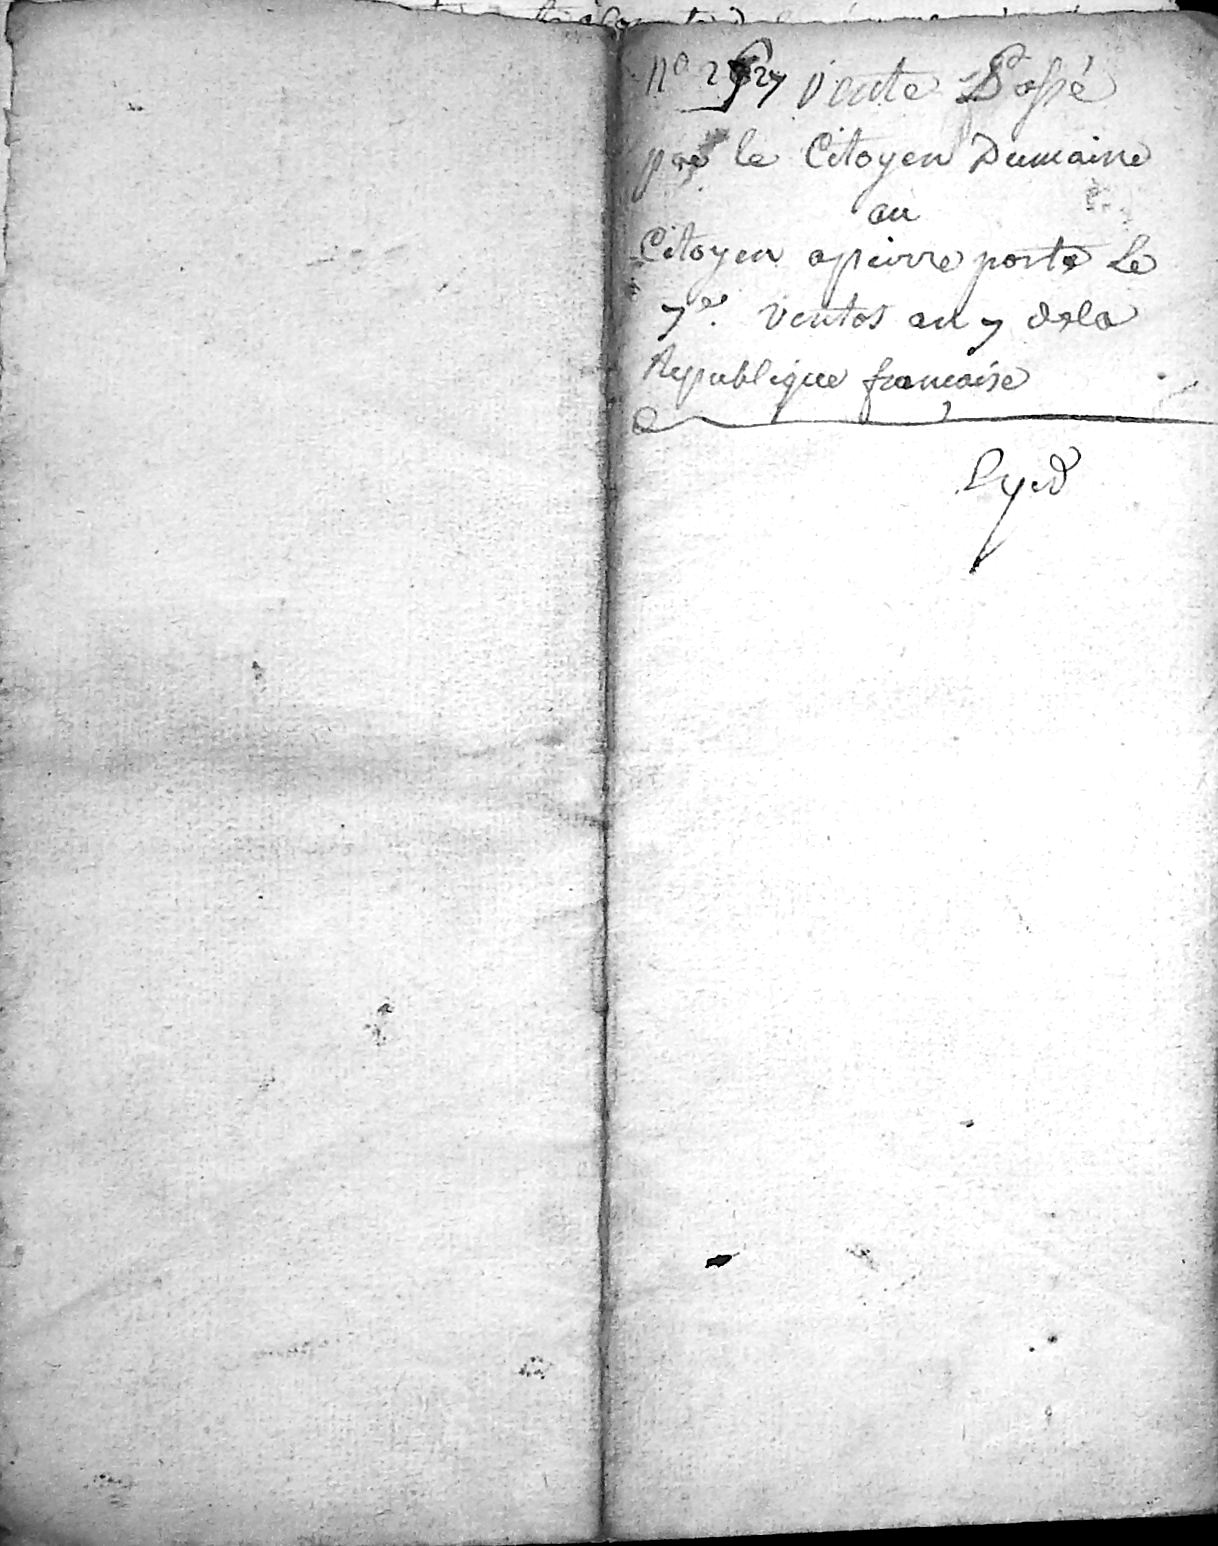 N° vente Passé
par le Citoyen Dumaine
au
Citoyen apierre porte Le
7e. ventos an 7 dela
Republique francaise